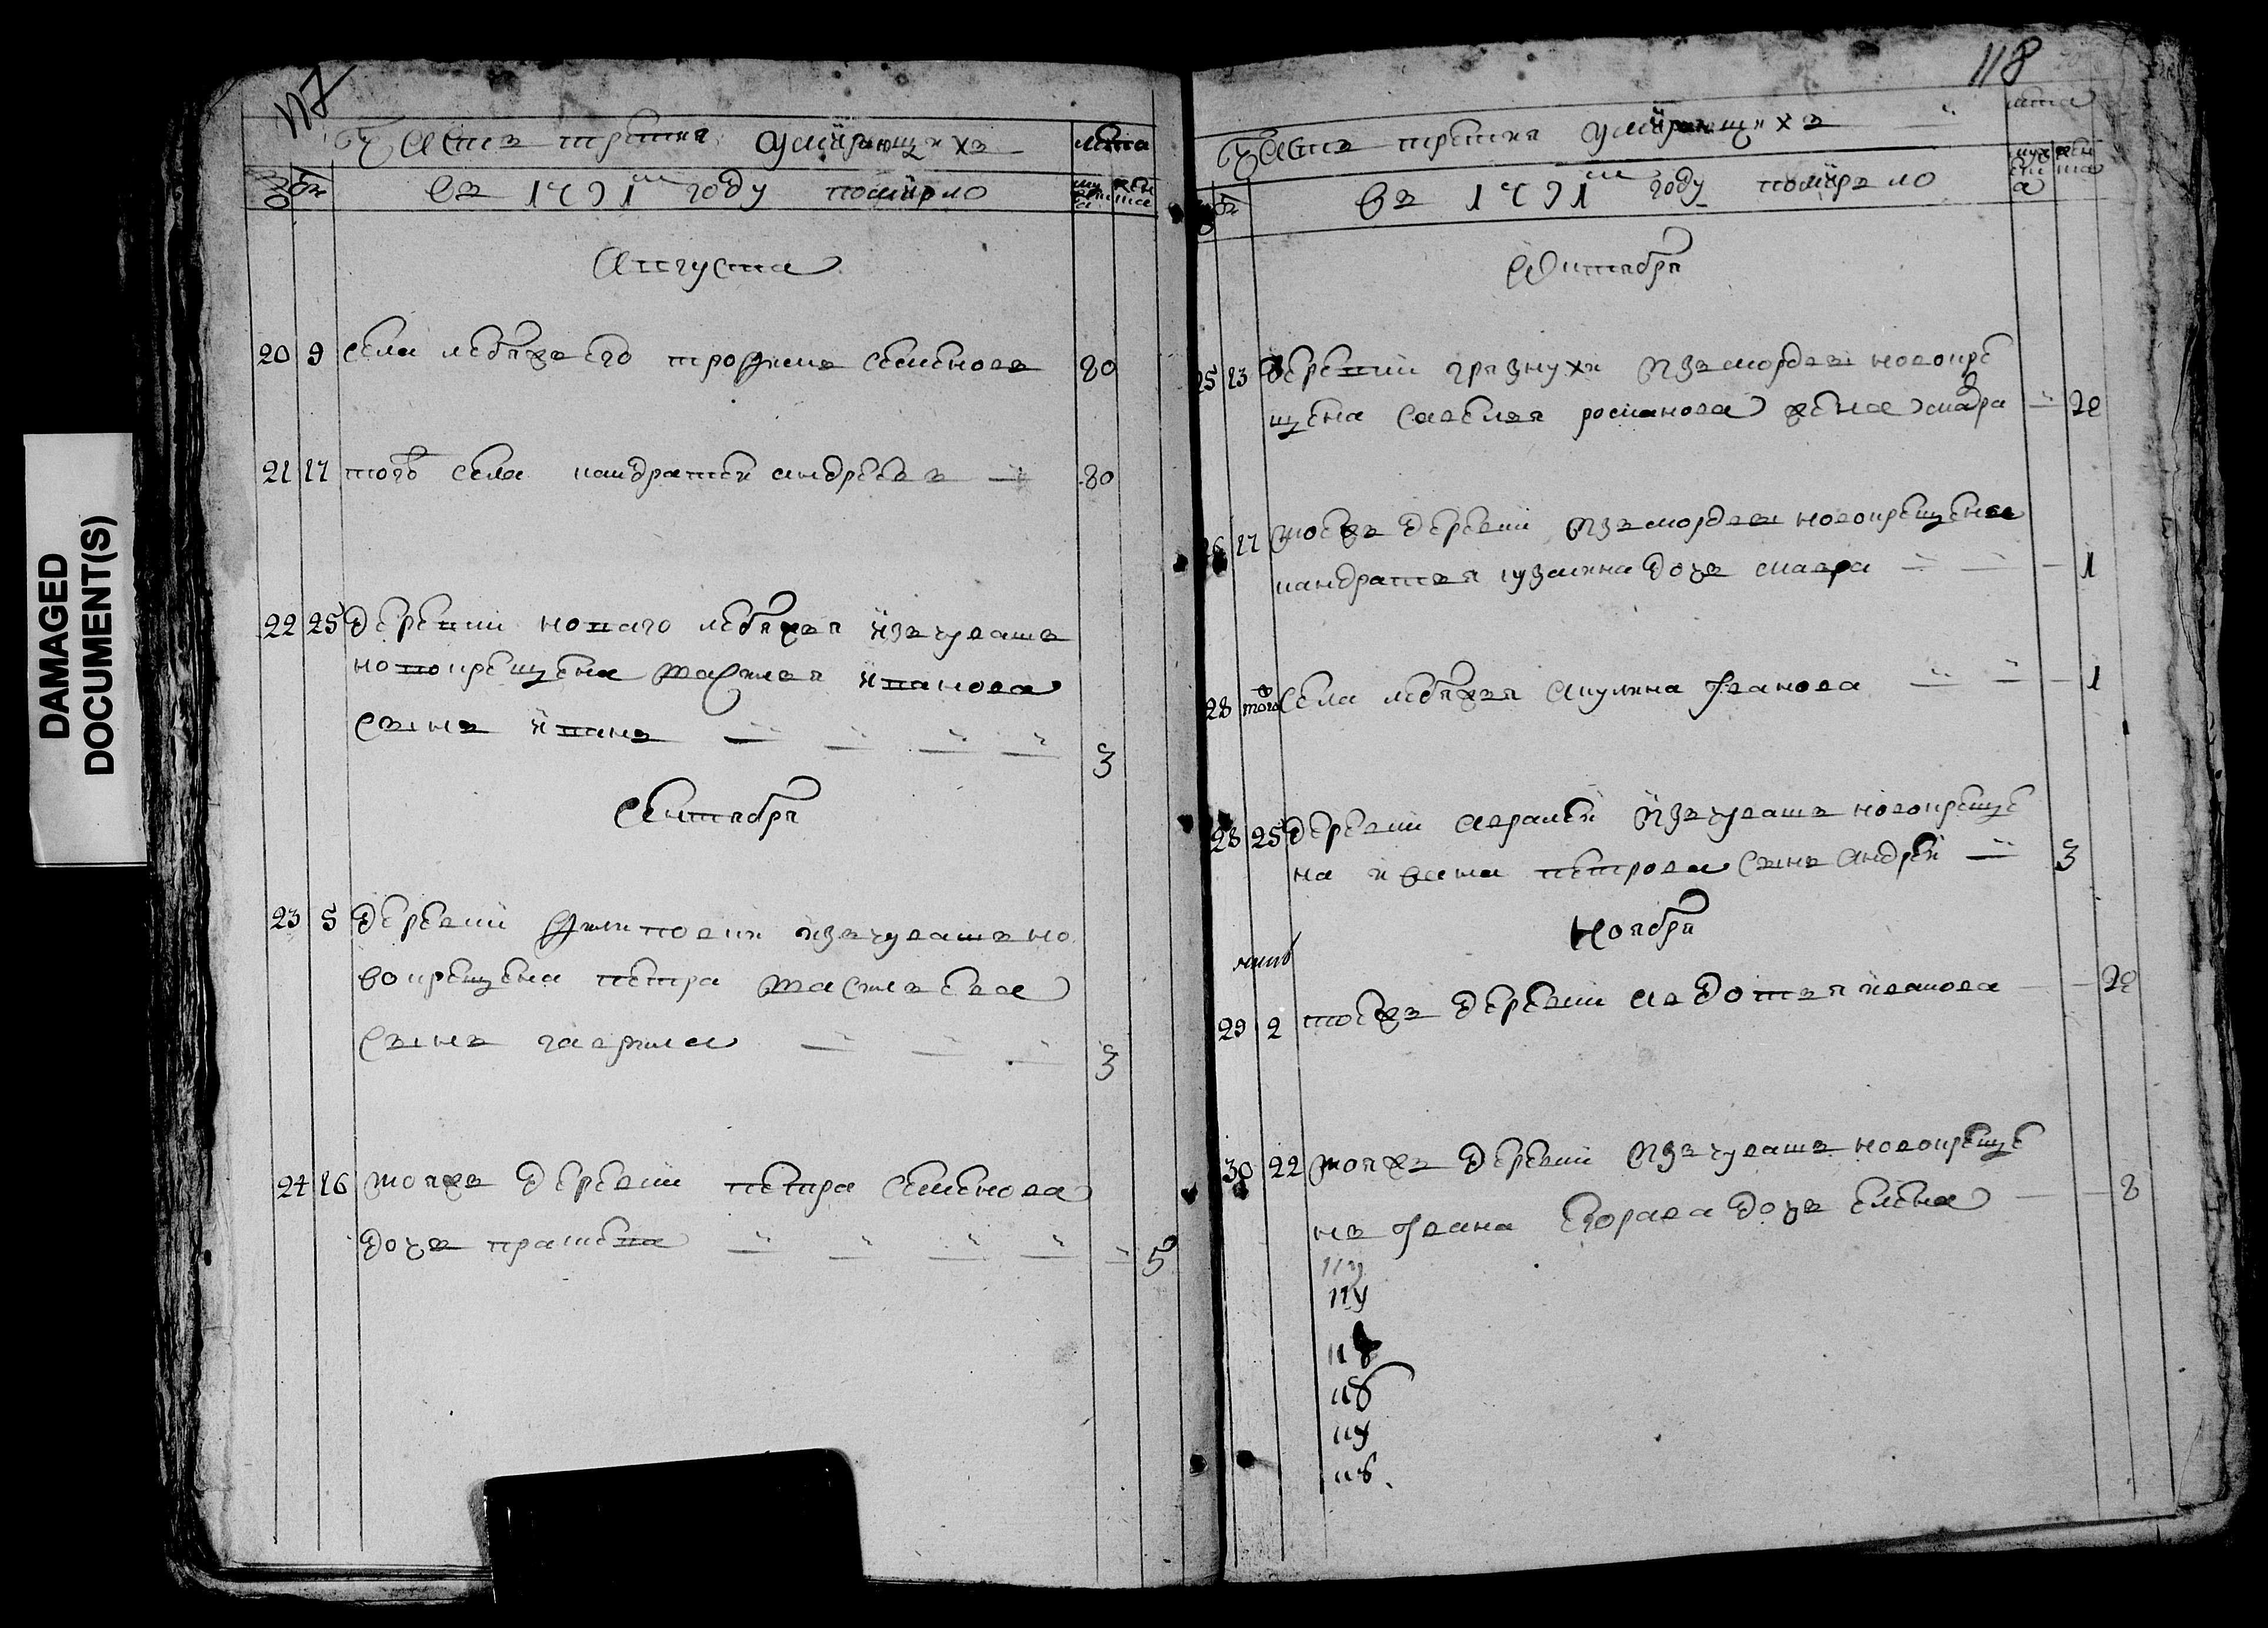 DAMAGED
DOCUMENT(S)
117
Часть третия умирающихъ
лета
въ 1791м году померло
Августа
20 9 села лебяжьего трофимъ семеновъ 80
21 17 тогожъ села кандратей андреевъ 80
22 25 деревни новаго лебяжья изъ чувашъ
новокрещена василья иванова
сынъ иванъ 3
Сентября
23 5 деревни филиповки изъ чувашъ но
вокрещена петра васильева
сынъ гаврила 3
24 16 тояжъ деревни петра семенова
дочь прасковья 5
118
Часть третия умирающихъ
лета
въ 1791м году померло
Октября
25 13 деревни грязнухи изъ мордвы новокре
щена савелья романова жена 20
26 17 тоежъ деревни изъ мордвы новокрещена
кандратья кузмина дочь мавра 1
28 того села лебяжья акулина иванова 1
28 25 деревни авралей изъ чувашъ новокреще
на ивана петрова сынъ андрей 3
Ноября
29 2 тоежъ деревни авдотья иванова 20
30 22 тояжъ деревни изъ чувашъ новокреще
на ивана егорова дочь елена 8
118
118
118
118